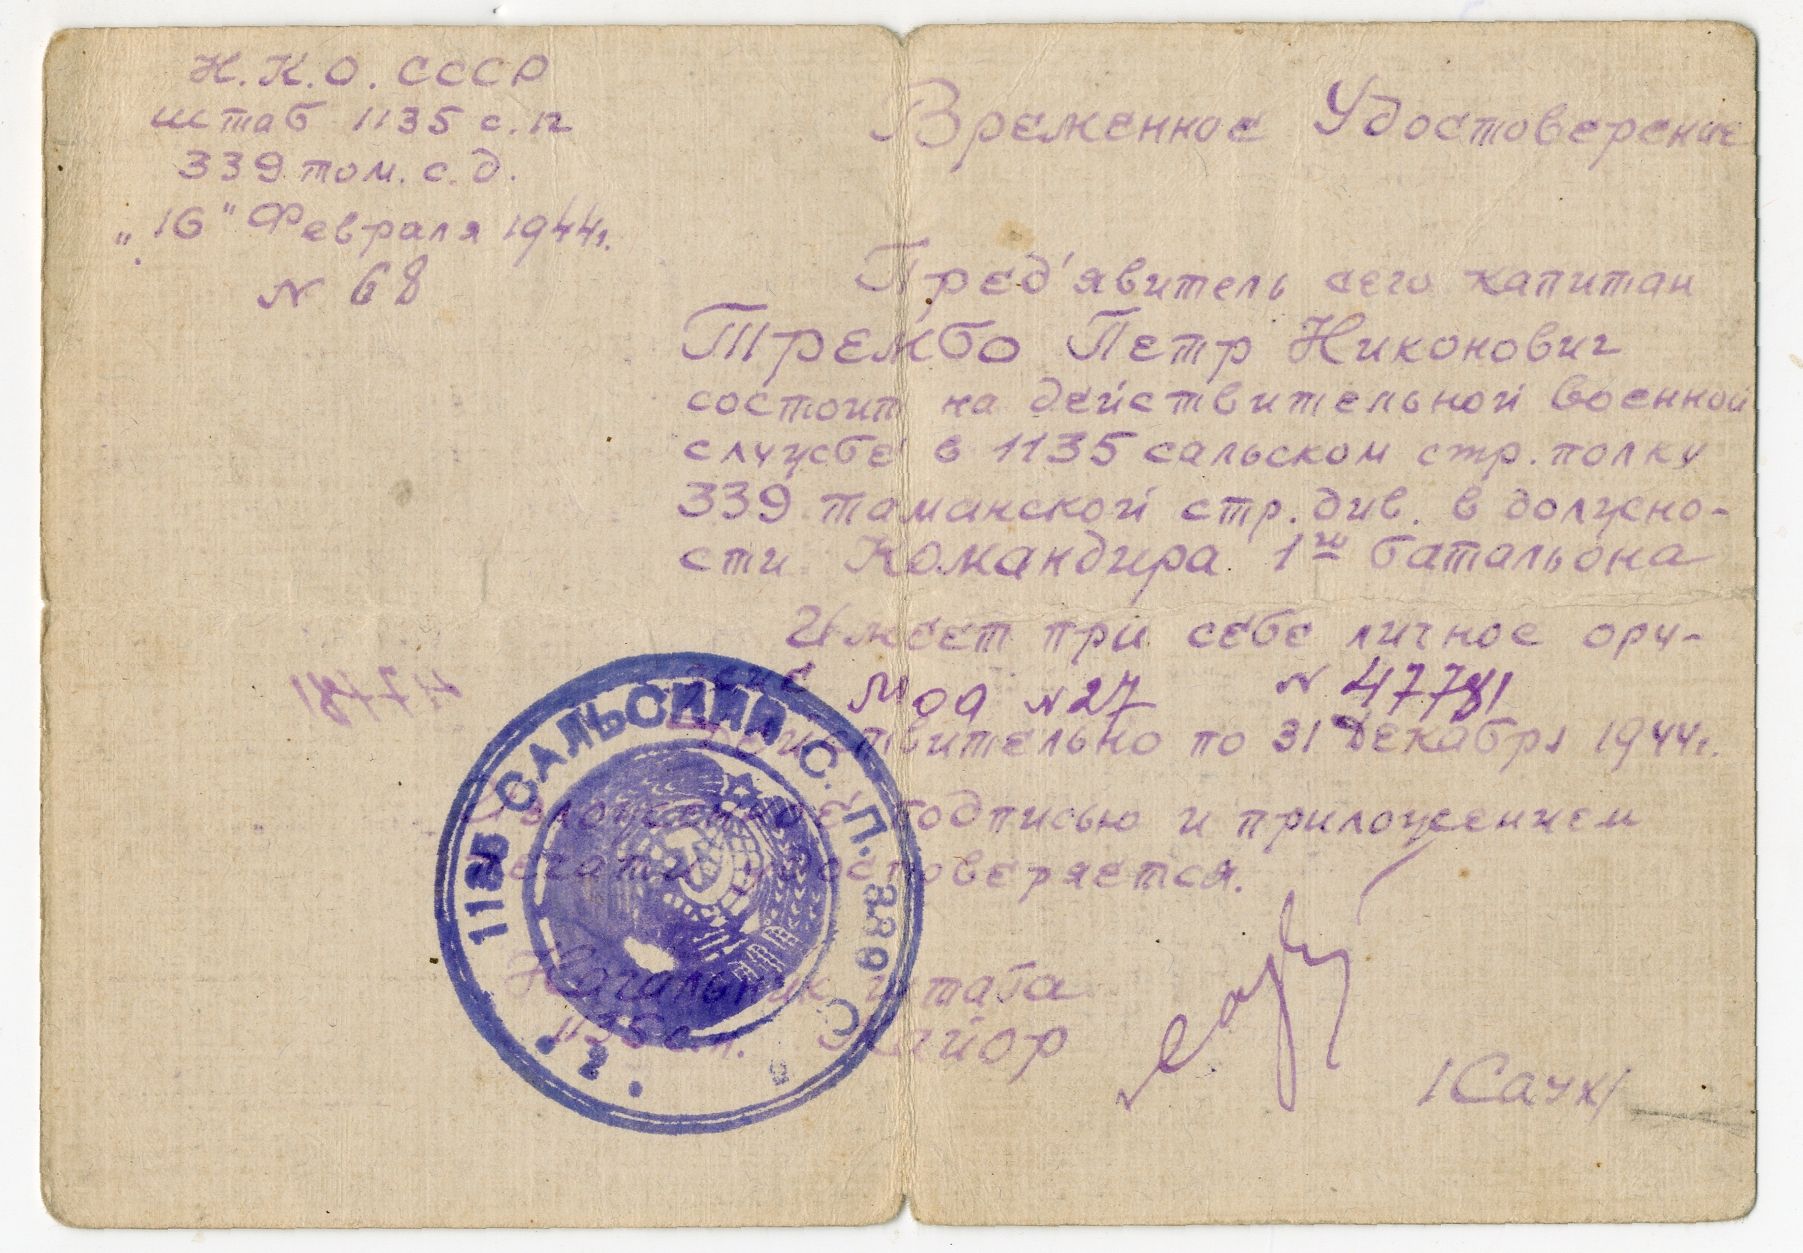 Н.К.О. СССР
штаб 1135 с.п
339 там. с.д.
„16" Февраля 1944г.
N 68
Временное Удостоверение
Пред'явитель сего капитан
Трембо Петр Никонович
состоит на действительной военной
службе в 1135 сальском стр. полку
339 таманской стр. див. в должно-
сти Командира 1го батальона
Имеет при себе личное ору-
жие N 27 N 47781
Действительно по 31 декабря 1944г.
Изложенное подписью и приложением
печати удостоверяется.
Начальник штаба
1135 с.п. Майор
/Сачк/
1135 САЛЬСКИЙ С. П. 339 С